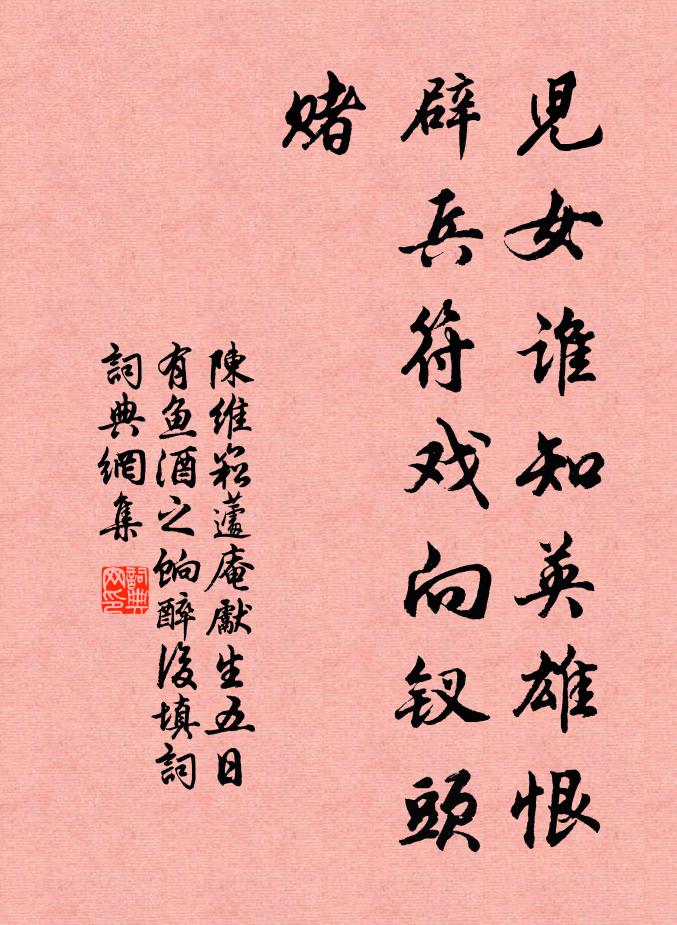 兒女谁知英雄恨
辟兵符戏向钗頭
赌
陳維崧蘆庵獻生五日
有魚酒之餉醉後填詞
詞典網集
詞典网印